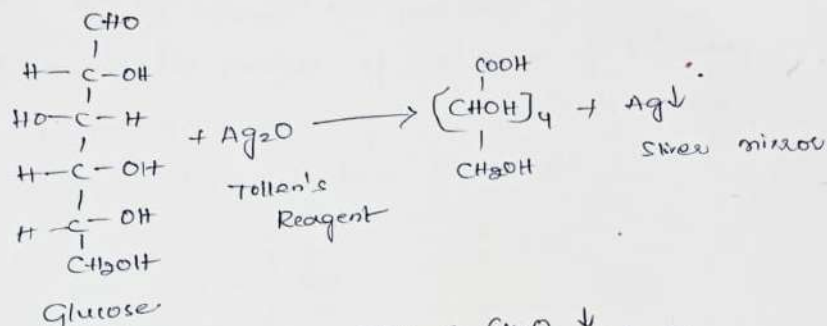 CHO
H — C — OH
HO — C — H
H — C — OH
H — C — OH
CH2OH
Glucose
+ Ag2O
Tollen's
Reagent
COOH
(CHOH]4
CH2OH
+ Ag↓
Silver mirror